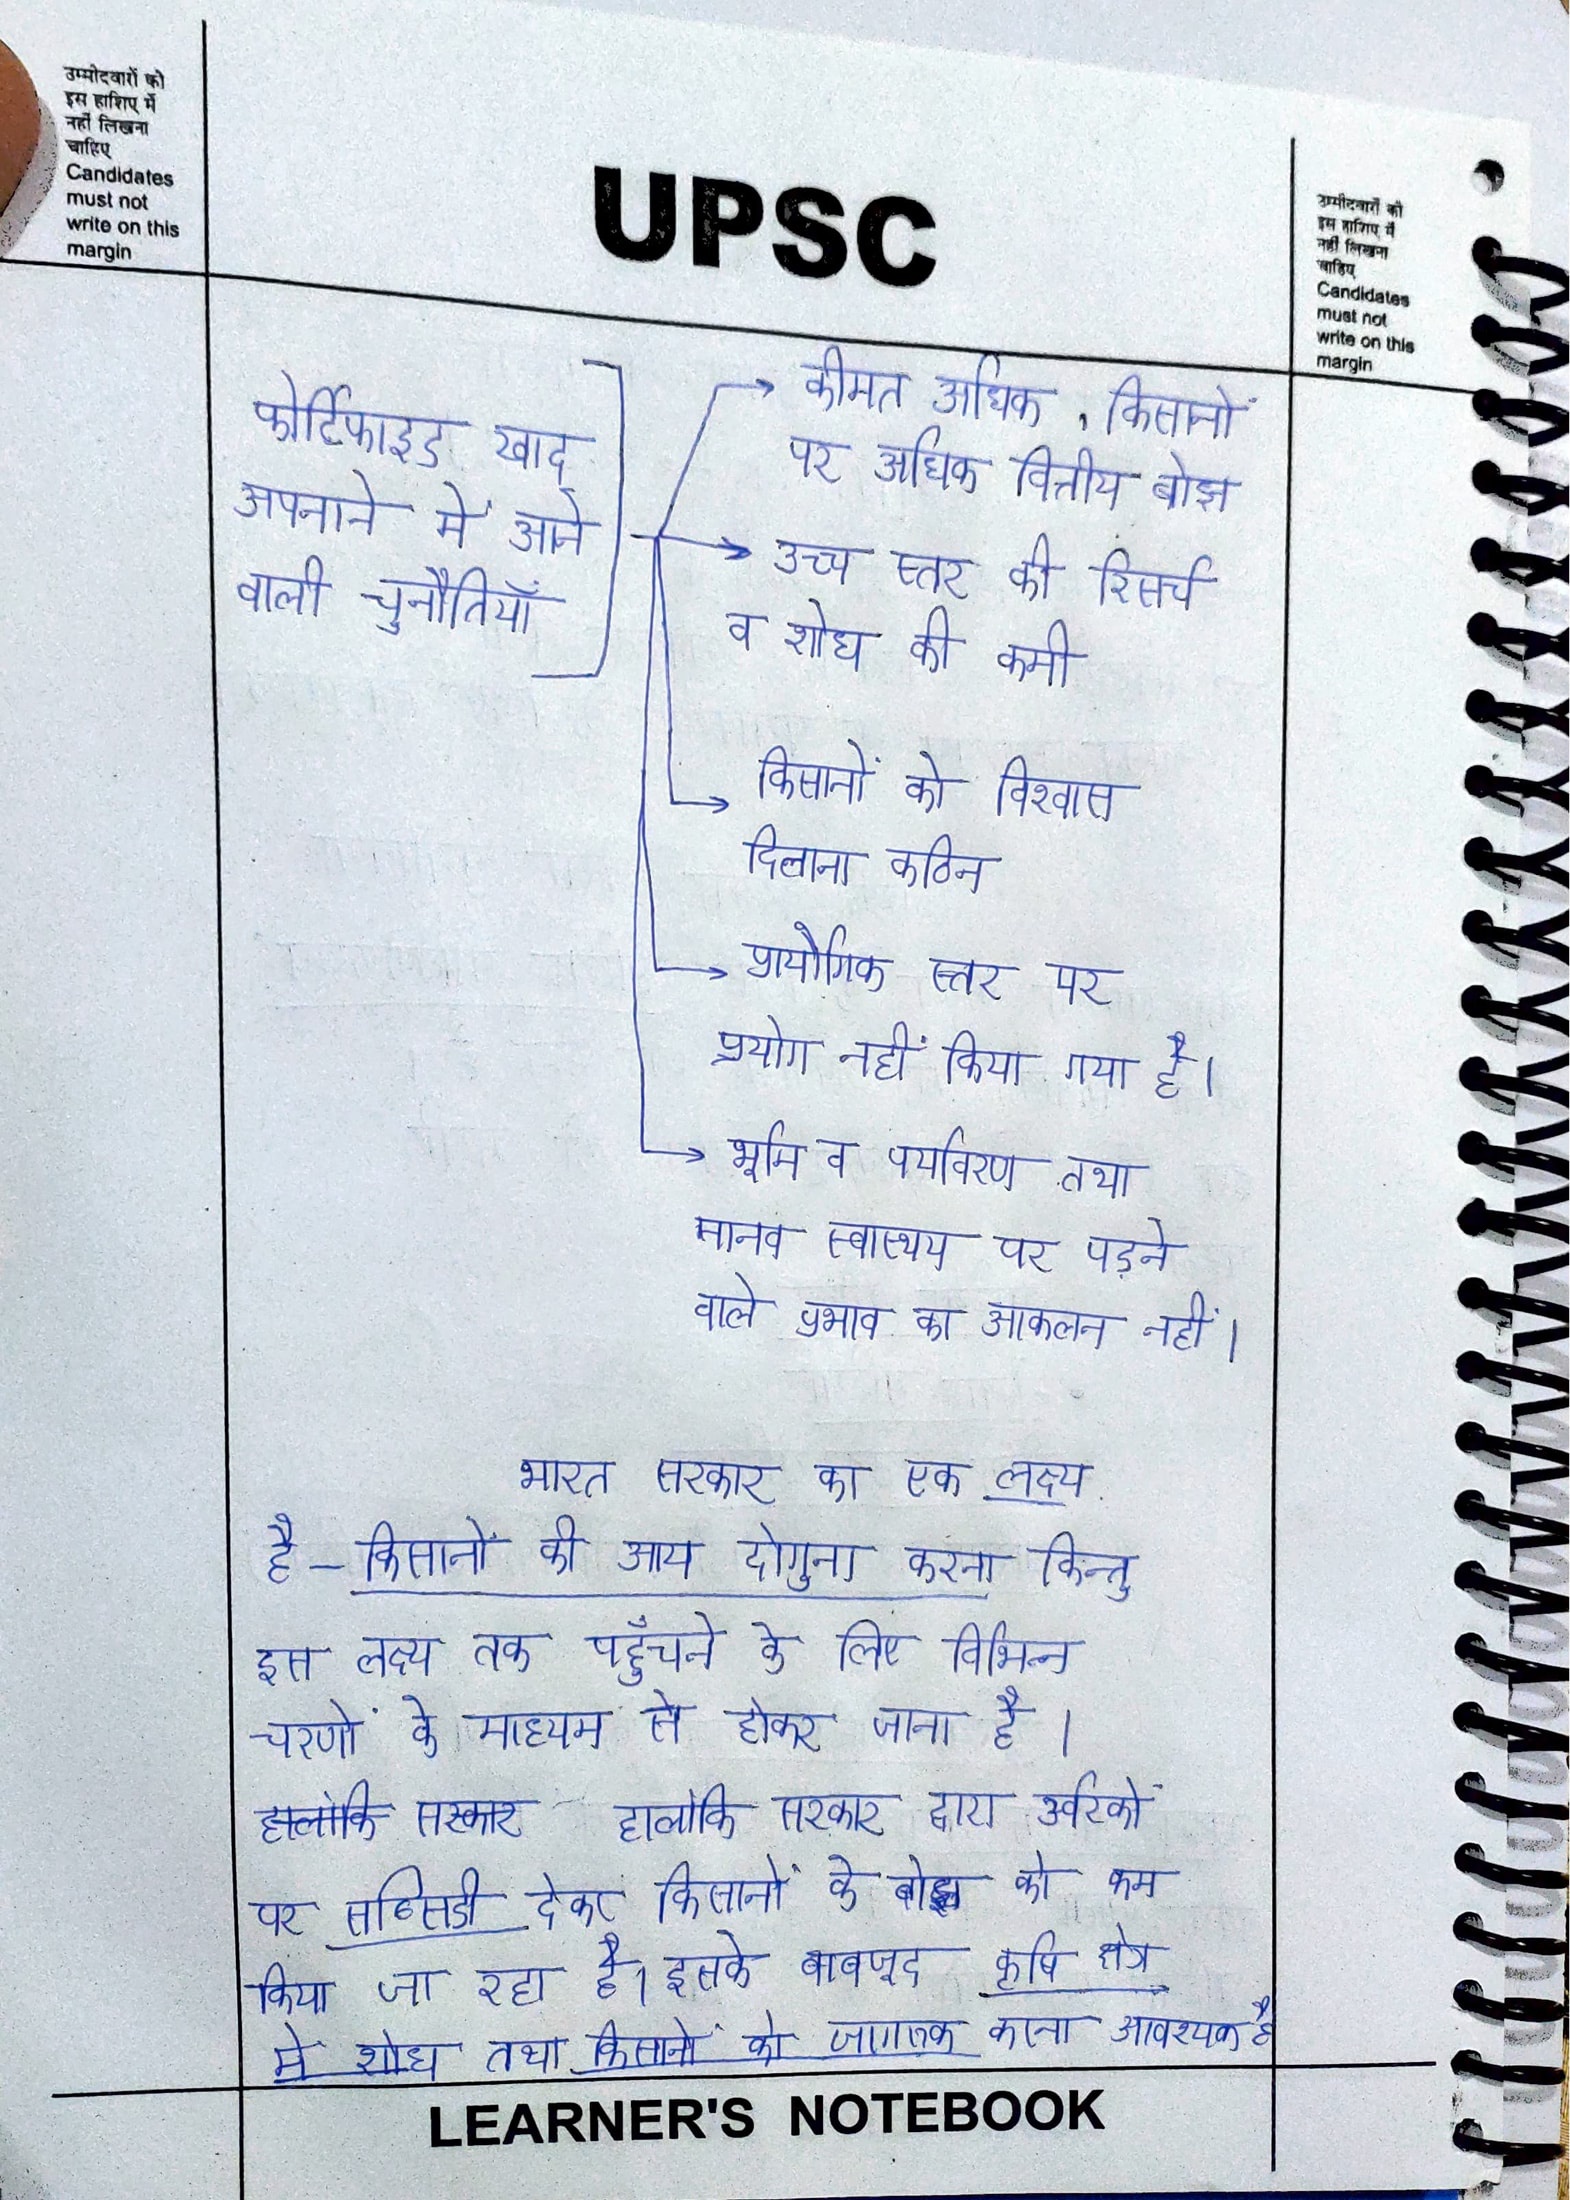 उम्मीदवारों को
इस हाशिए में
नहीं लिखना
चाहिए
Candidates
must not
write on this
margin
UPSC
उम्मीदवारों को
इस हाशिए में
नहीं लिखना
चाहिए
Candidates
must not
write on this
margin
फोर्टिफाइड खाद
अपनाने में आने
वाली चुनौतियाँ
कीमत अधिक, किसानों
पर अधिक वित्तीय बोझ
उच्च स्तर की रिसर्च
व शोध की कमी
किसानों को विश्वास
दिलाना कठिन
प्रायोगिक स्तर पर
प्रयोग नहीं किया गया है।
भूमि व पर्यावरण तथा
मानव स्वास्थय पर पड़ने
वाले प्रभाव का आकलन नहीं।
भारत सरकार का एक लक्ष्य
है – किसानों की आय दोगुना करना किन्तु
इस लक्ष्य तक पहुँचने के लिए विभिन्न
चरणों के माध्यम से होकर जाना है।
हालांकि सरकार हालांकि सरकार द्वारा उर्वरकों
पर सब्सिडी देकर किसानों के बोझ को कम
किया जा रहा है। इसके बावजूद कृषि क्षेत्र
में शोध तथा किसानों को जागरूक करना आवश्यक है
LEARNER'S NOTEBOOK